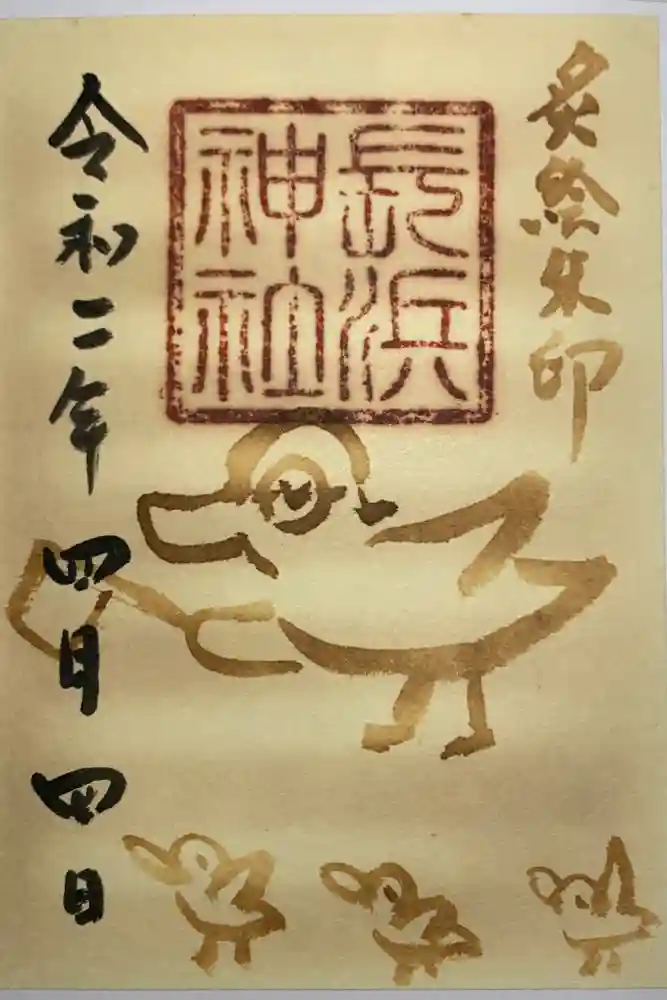 炙絵朱印
長浜
神社
令和二年 四月 四日